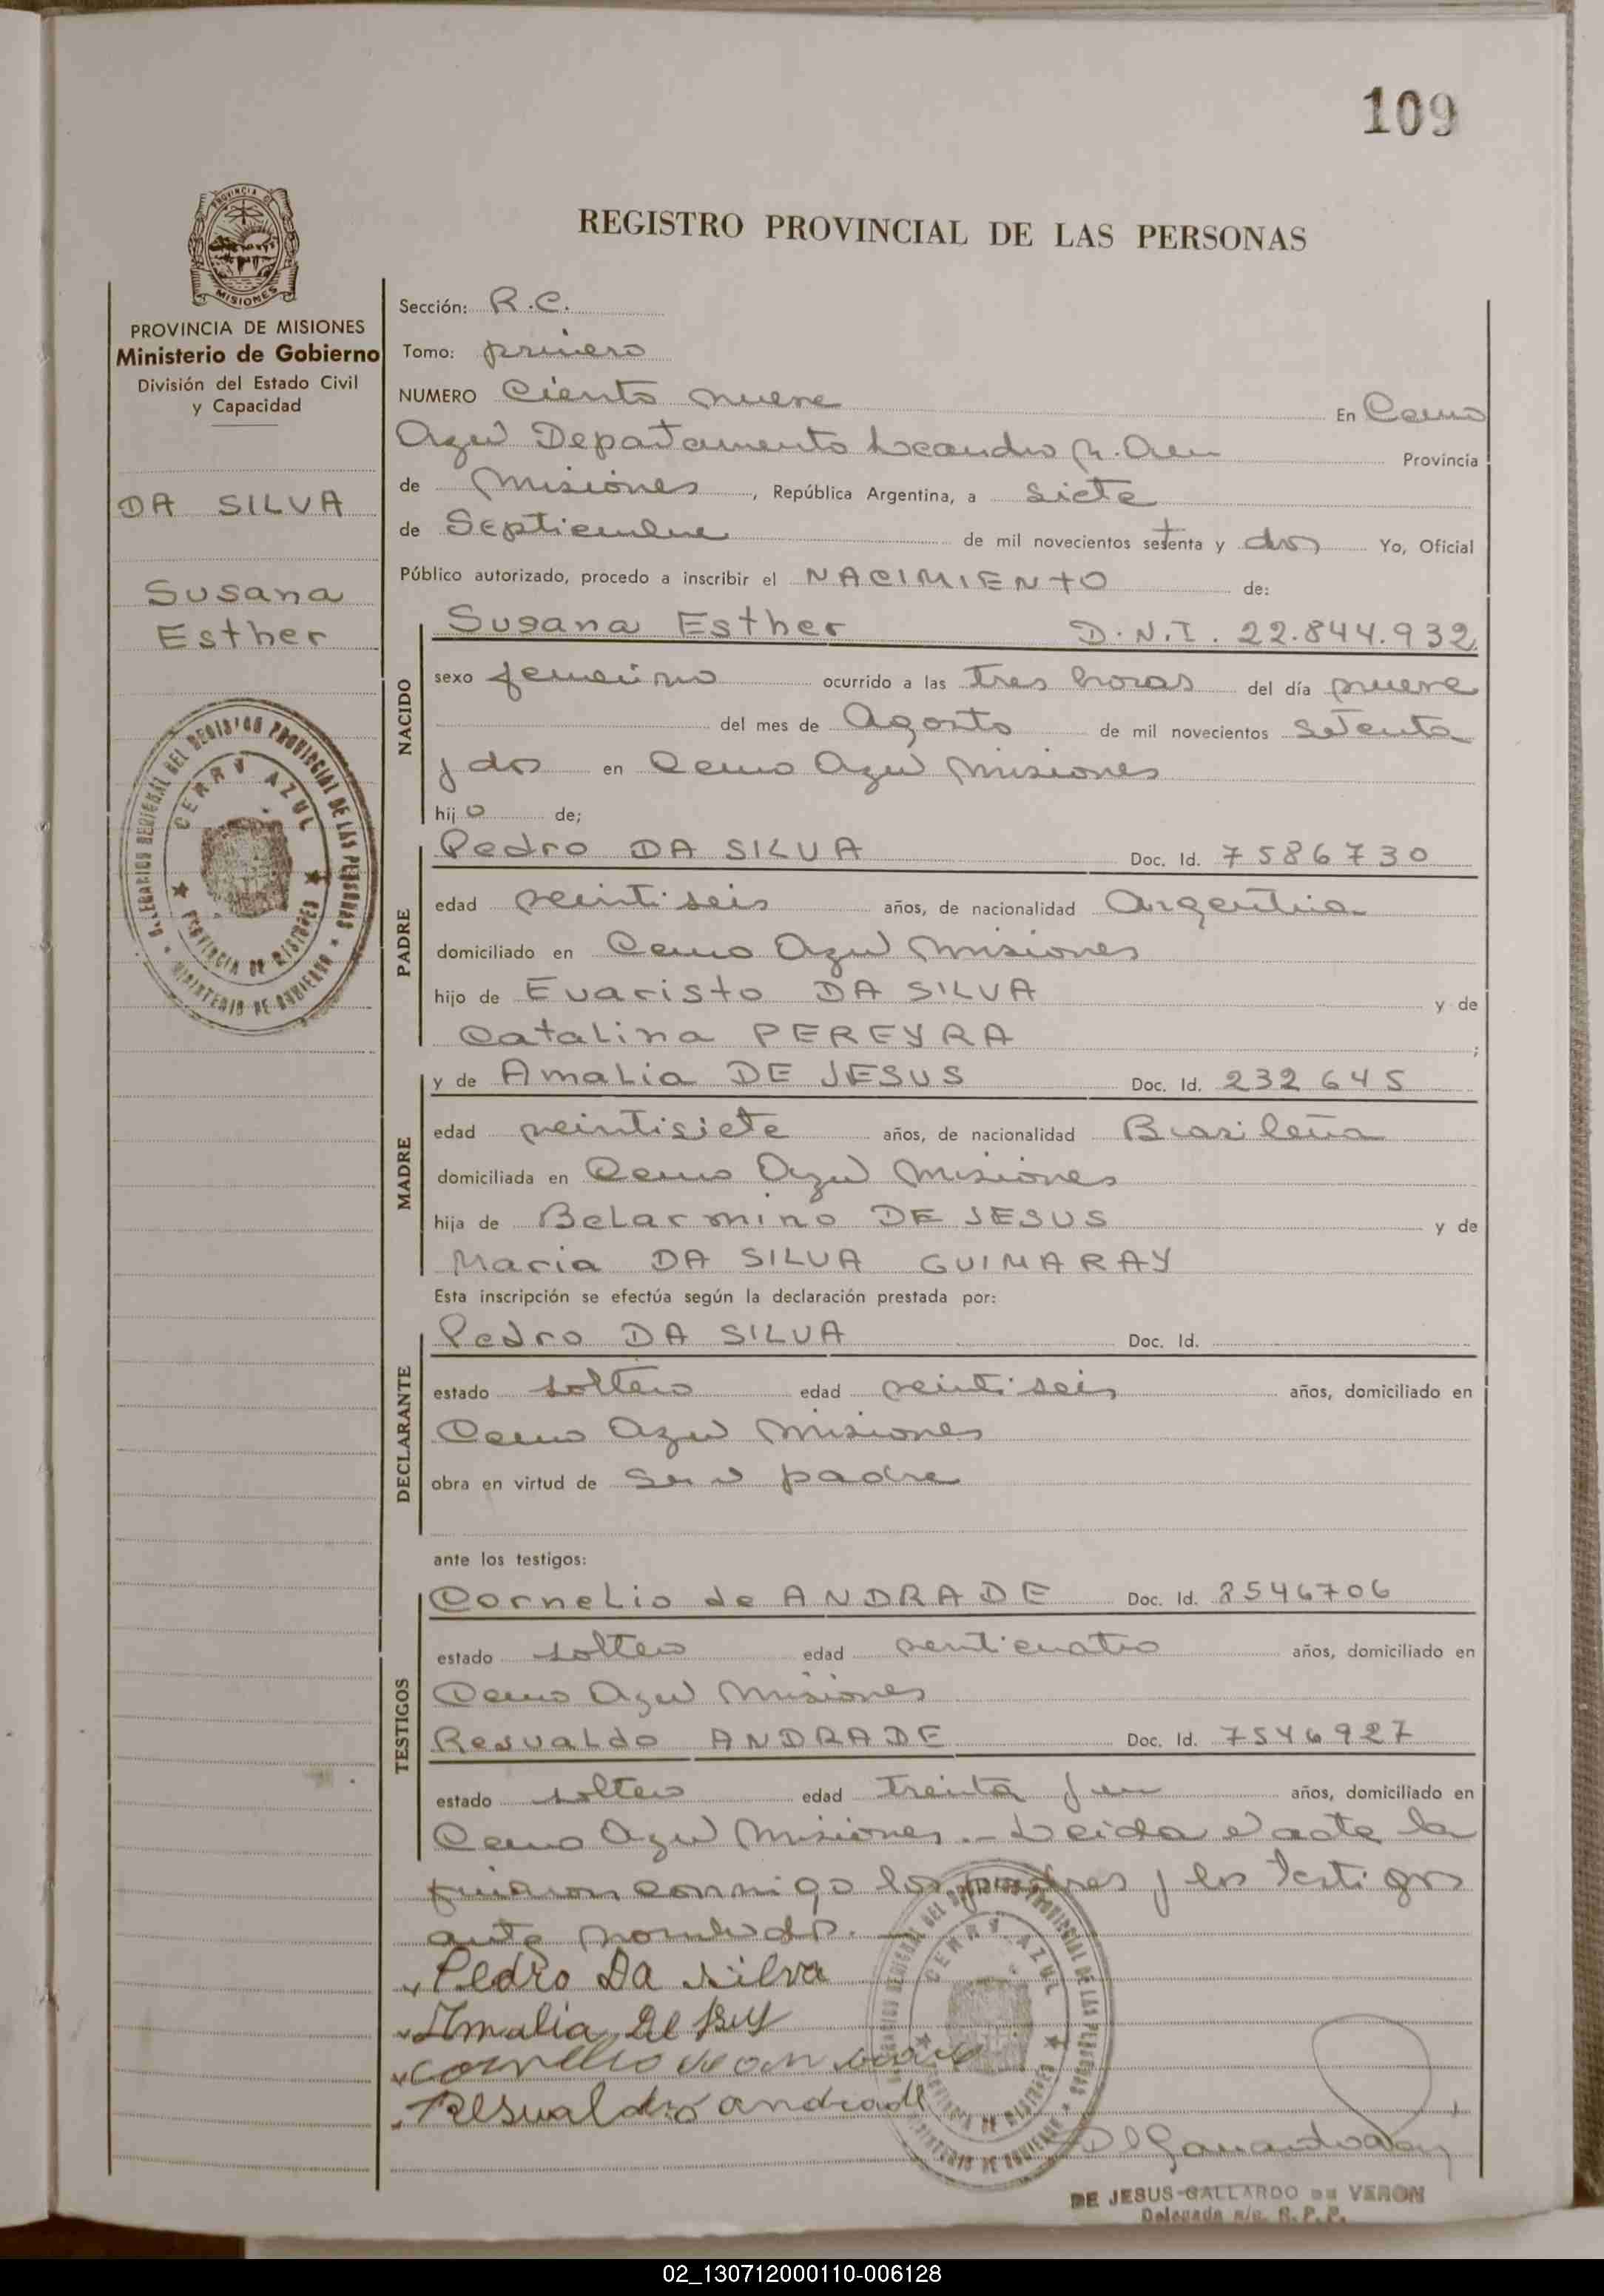 109
REGISTRO PROVINCIAL DE LAS PERSONAS
PROVINCIA DE MISIONES
Ministerio de Gobierno
División del Estado Civil
y Capacidad
DA SILVA
Susana
Esther
Sección: R.C.
Tomo: primero
NUMERO Ciento nueve En Cerro
Azul Departamento Leandro N. Alem Provincia
de Misiones, República Argentina, a siete
de Septiembre de mil novecientos setenta y dos Yo, Oficial
Público autorizado, procedo a inscribir el NACIMIENTO de:
NACIDO
Susana Esther D.N.I. 22.844.932
sexo femenino ocurrido a las tres horas del día nueve
del mes de Agosto de mil novecientos setenta
y dos en Cerro Azul Misiones
hijo de;
PADRE
Pedro DA SILVA Doc. Id. 7586730
edad veintiseis años, de nacionalidad Argentina
domiciliado en Cerro Azul Misiones
hijo de Evaristo DA SILVA y de
Catalina PEREYRA ;
MADRE
y de Amalia DE JESUS Doc. Id. 232645
edad veintisiete años, de nacionalidad Brasileña
domiciliada en Cerro Azul Misiones
hija de Belarmino DE JESUS y de
Maria DA SILVA GUIMARAY
Esta inscripción se efectúa según la declaración prestada por:
DECLARANTE
Pedro DA SILVA Doc. Id.
estado soltero edad veintiseis años, domiciliado en
Cerro Azul Misiones
obra en virtud de ser el padre
ante los testigos:
TESTIGOS
Cornelio de ANDRADE Doc. Id. 8546706
estado soltero edad venticuatro años, domiciliado en
Cerro Azul Misiones
Resualdo ANDRADE Doc. Id. 7546927
estado soltero edad treinta y un años, domiciliado en
Cerro Azul Misiones.- Leida el acta la
firmaron conmigo los padres y los testigos
ante nombrados.
Pedro Da silva
Amalia De
Resualdo andrade
DE JESUS GALLARDO DE VERON
Delegada R. P. P.
CERRO AZUL
PROVINCIA DE MISIONES
MINISTERIO DE GOBIERNO
02_130712000110-006128